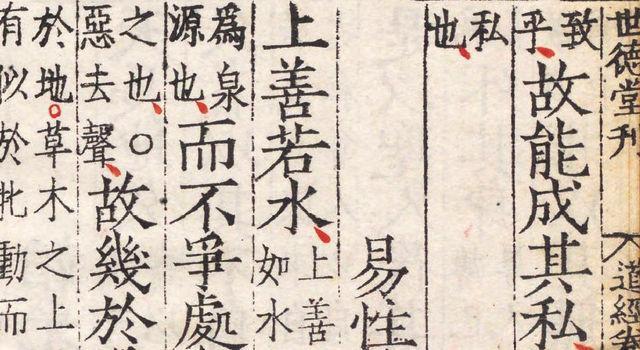 世德堂刊 八 道經
致
乎
故能成其私
私
也
易性
上善若水
上善
如水
爲泉
源也
而不爭處
之也○
惡去聲
故幾於
於地草木之上
有似於牝動而